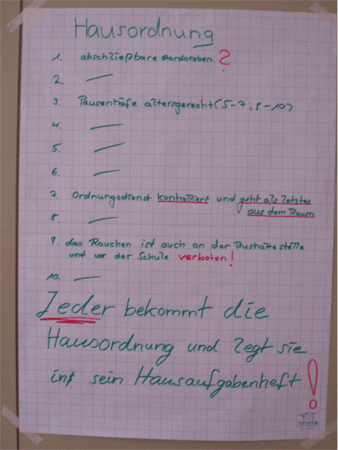 Hausordnung
1. abschließbare Garderoben ?
2. —
3. Pausenhöfe altersgerecht (5-7; 8-10)
4. —
5. —
6. —
7. Ordnungsdienst kontrolliert und geht als letztes
aus dem Raum
8. —
9. das Rauchen ist auch an der Bushaltestelle
und vor der Schule verboten!
10. —
Jeder bekommt die
Hausordnung und legt sie
in sein Hausaufgabenheft !